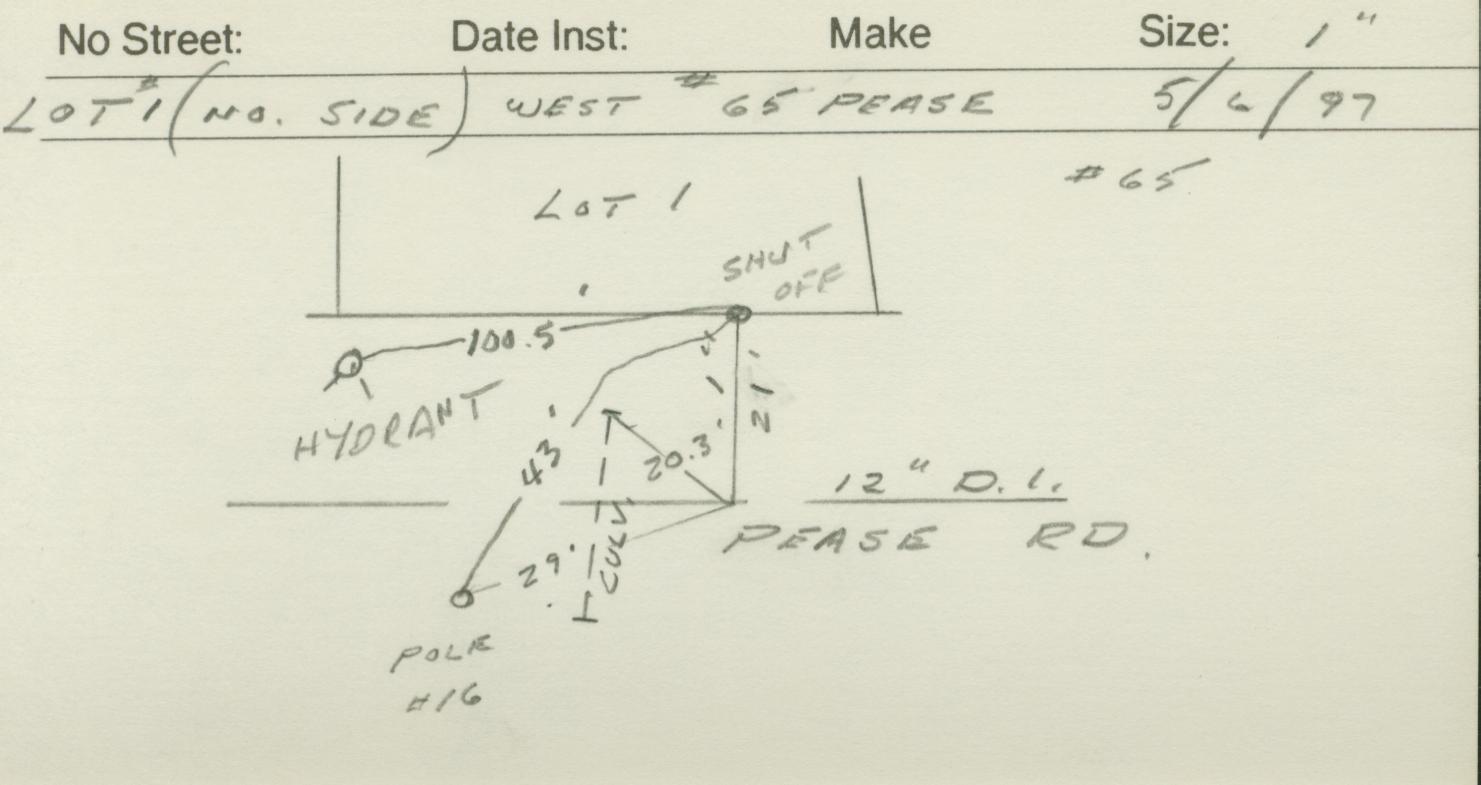 No Street: Date Inst: Make Size: 1"
LOT #1 (NO. SIDE) WEST #65 PEASE 5/6/97
#65
LOT 1
SHUT
OFF
100.5'
HYDRANT
21'
43'
20.3'
12" D.I.
PEASE RD.
CULV.
29'
POLE
#16